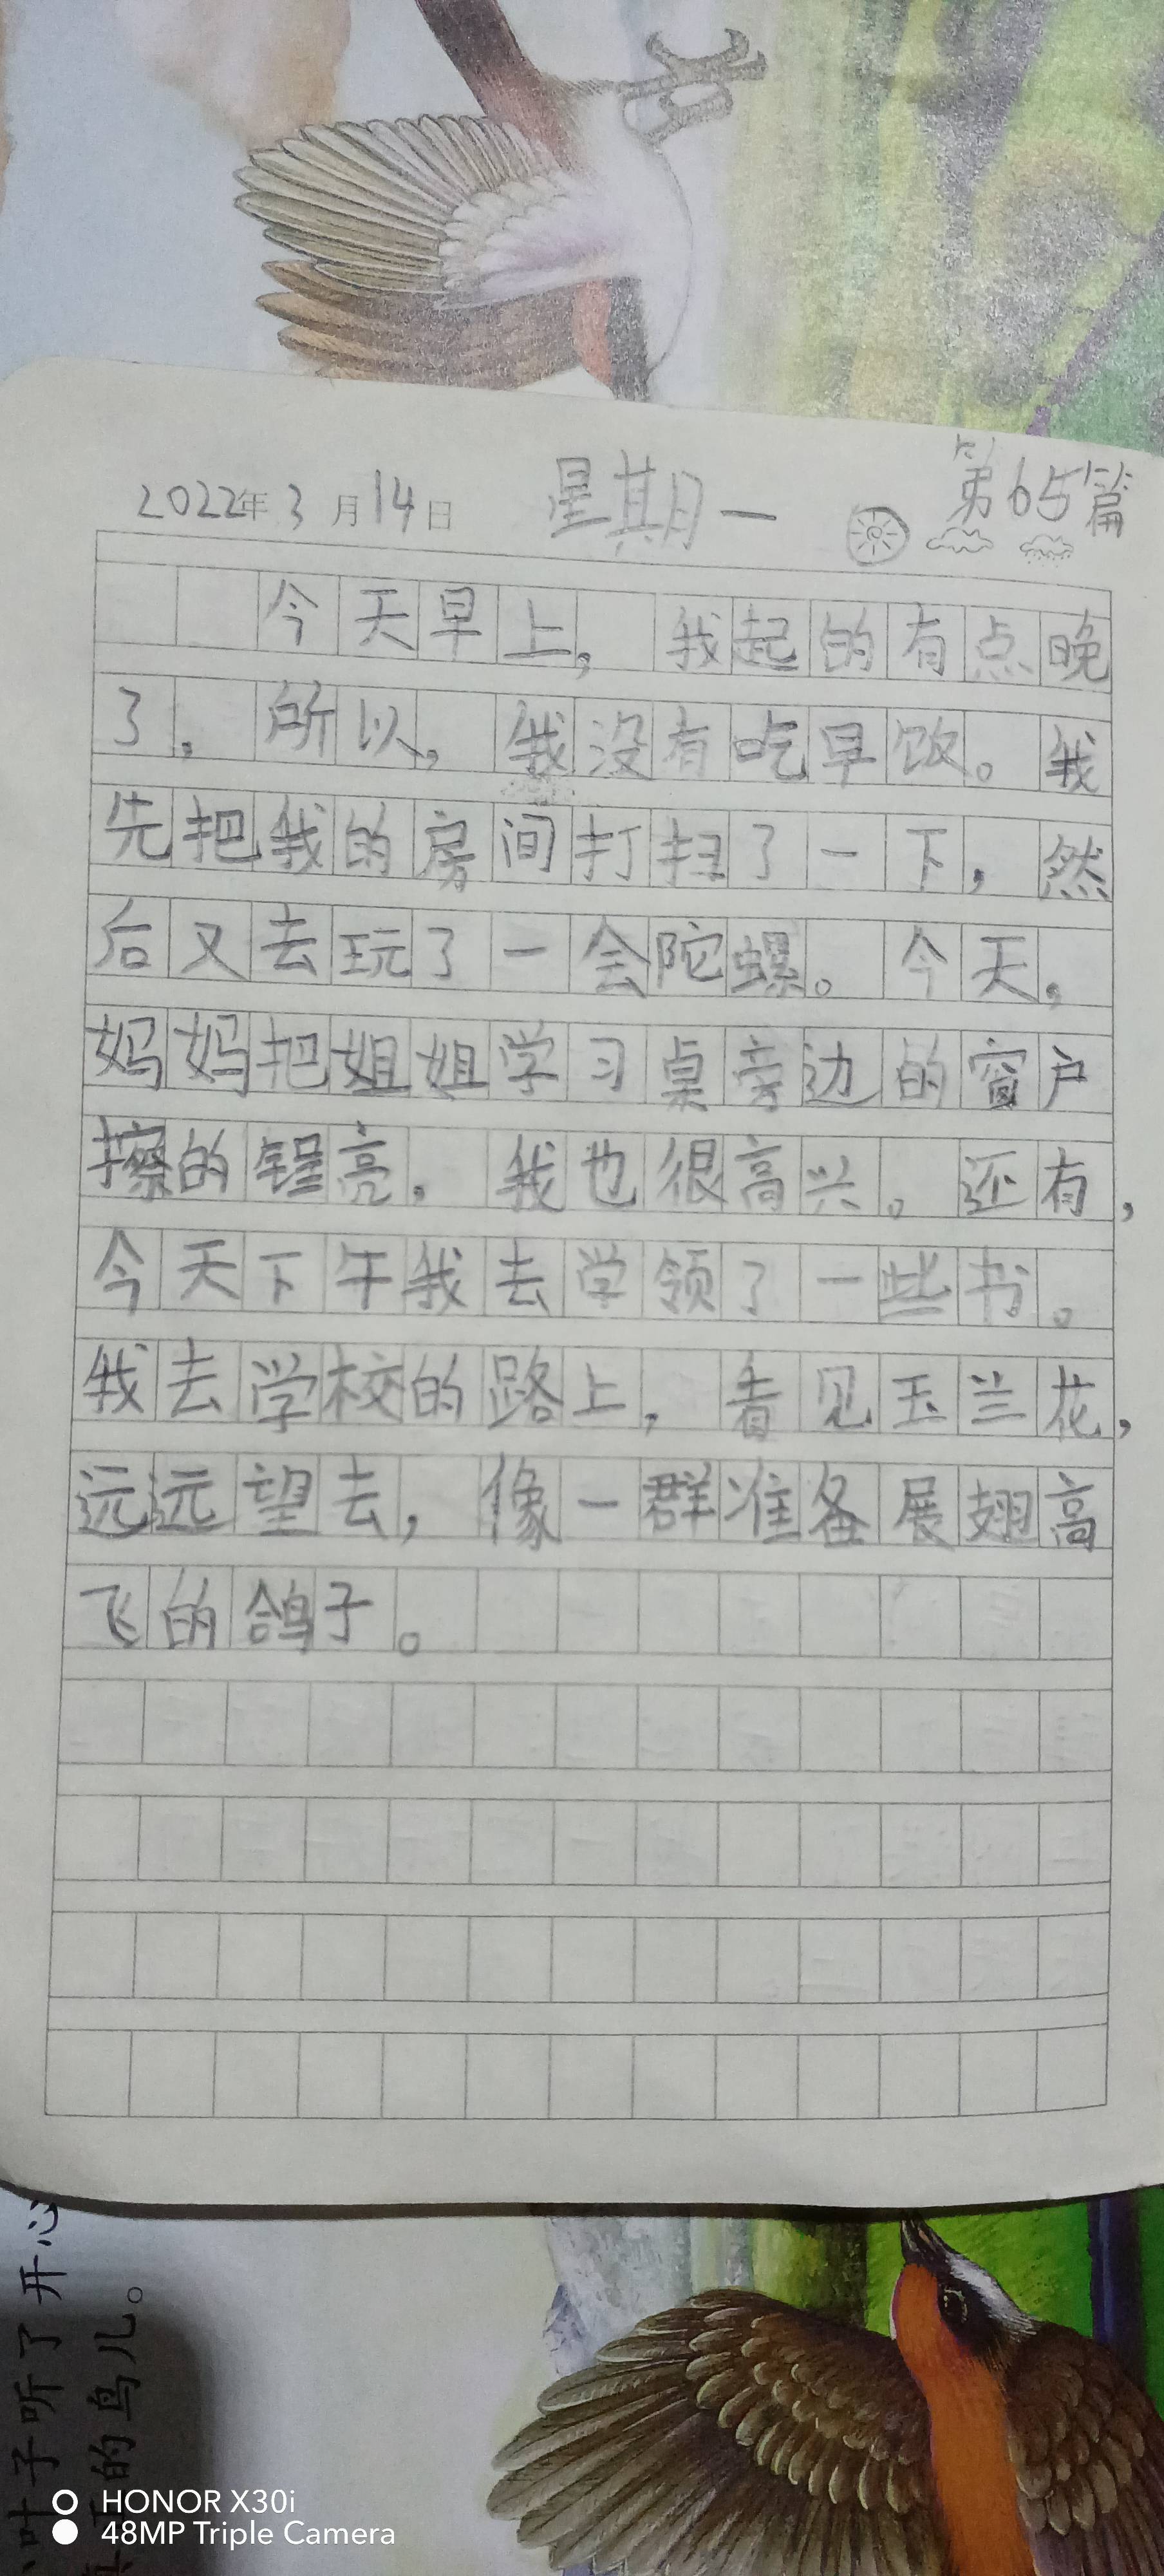 2022年3月14日 星期一 第65篇
今天早上，我起的有点晚
了，所以，我没有吃早饭。我
先把我的房间打扫了一下，然
后又去玩了一会陀螺。今天，
妈妈把姐姐学习桌旁边的窗户
擦的锃亮，我也很高兴。还有，
今天下午我去学领了一些书。
我去学校的路上，看见玉兰花，
远远望去，像一群准备展翅高
飞的鸽子。
叶子听了开心
的鸟儿。
HONOR X30i
48MP Triple Camera